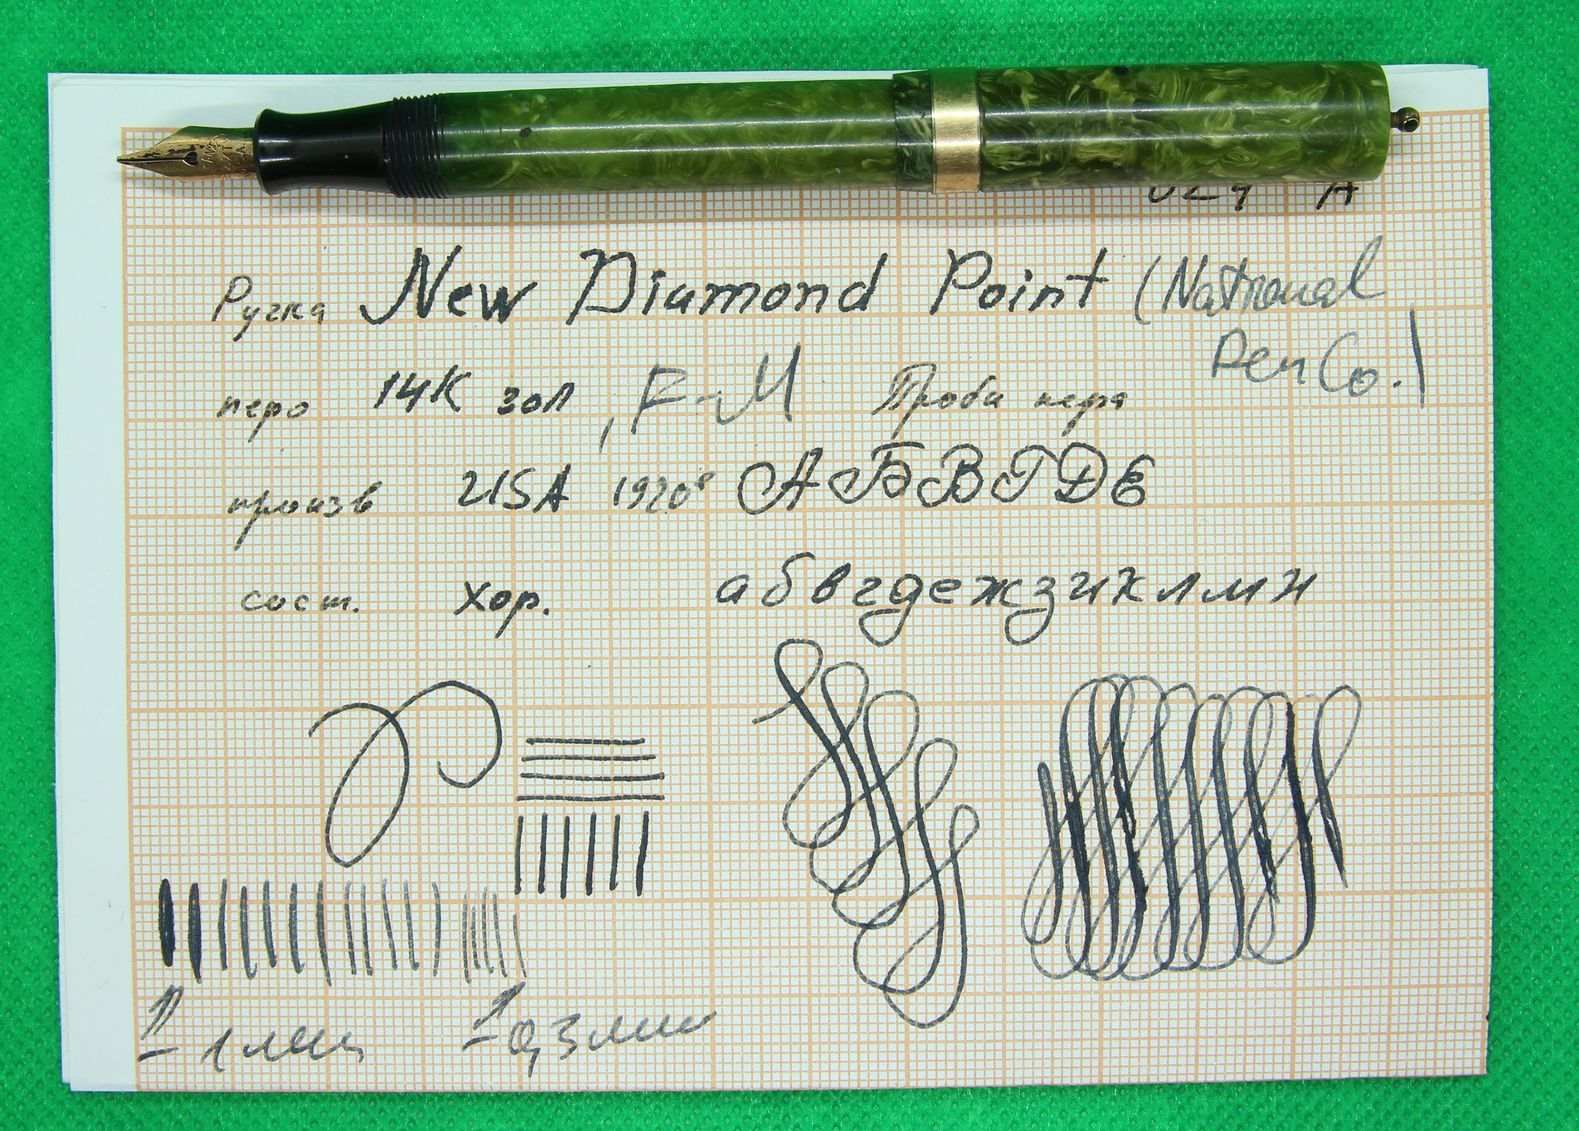 Ручка New Diamond Point (National
Pen Co.)
перо 14К зол, F-M Проба пера
произв USA 1920е АБВГДЕ
сост. хор. абвгдежзиклмн
1 мм 0,3 мм